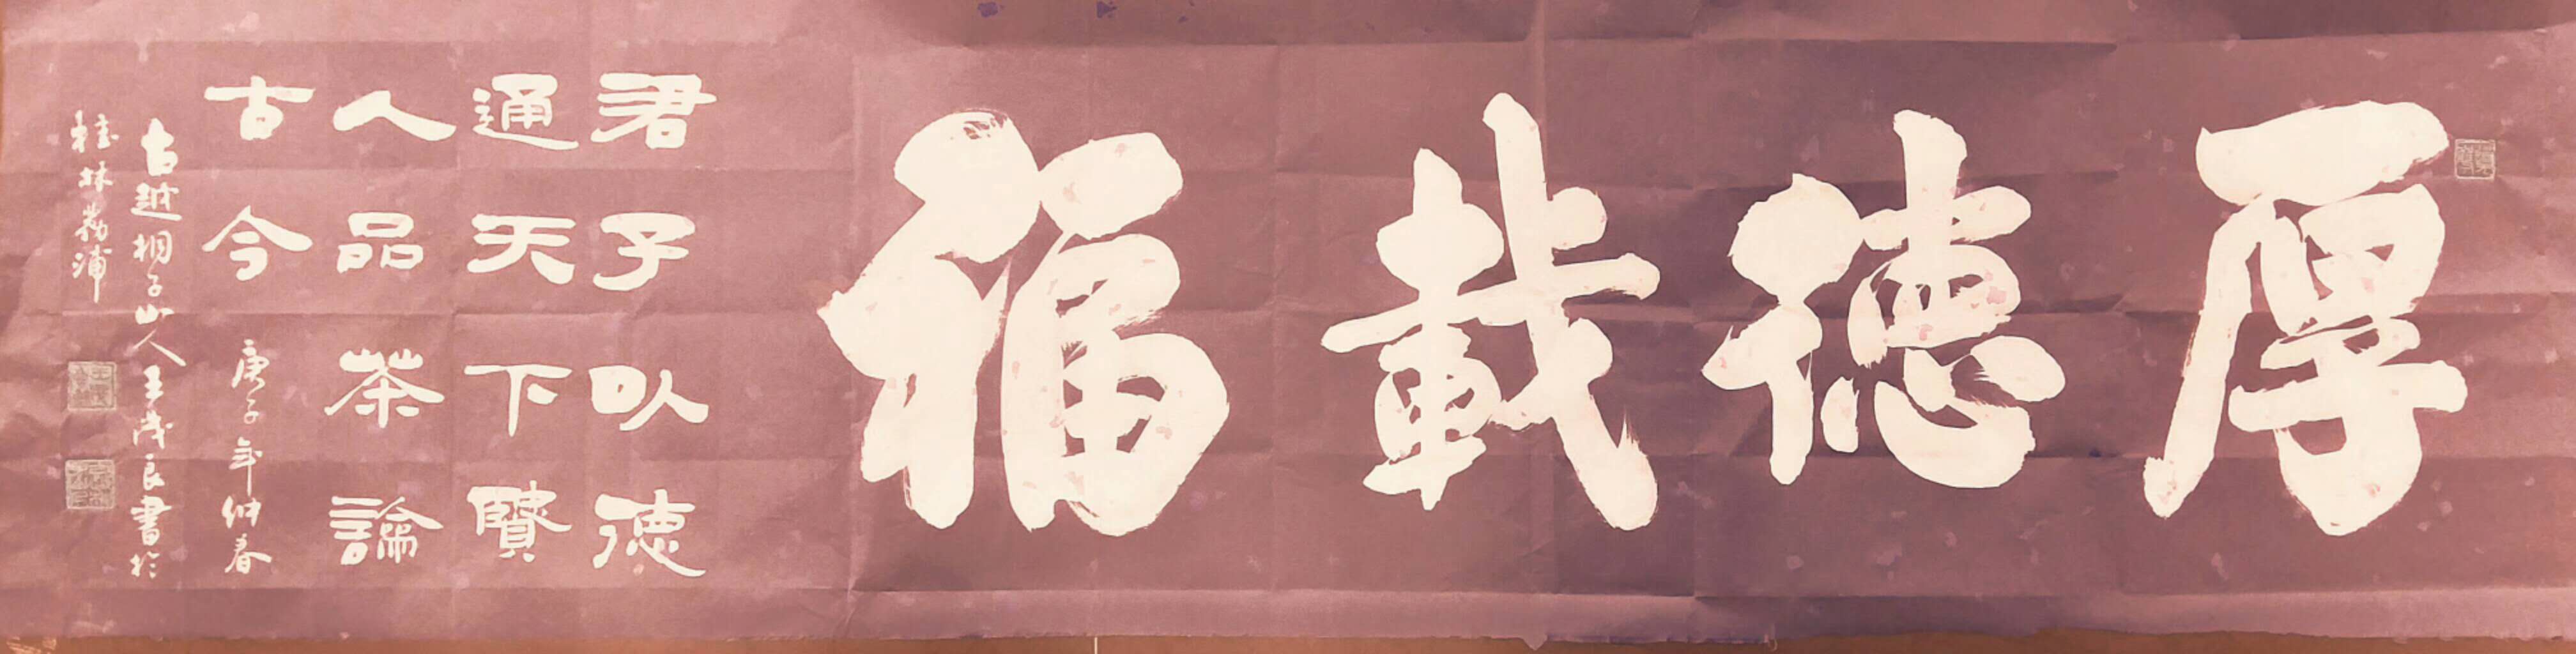 厚德載福
君子以德
通天下賢
人品茶論
古今
庚子年仲春
古越桐子山人王茂良書於
桂林荔浦